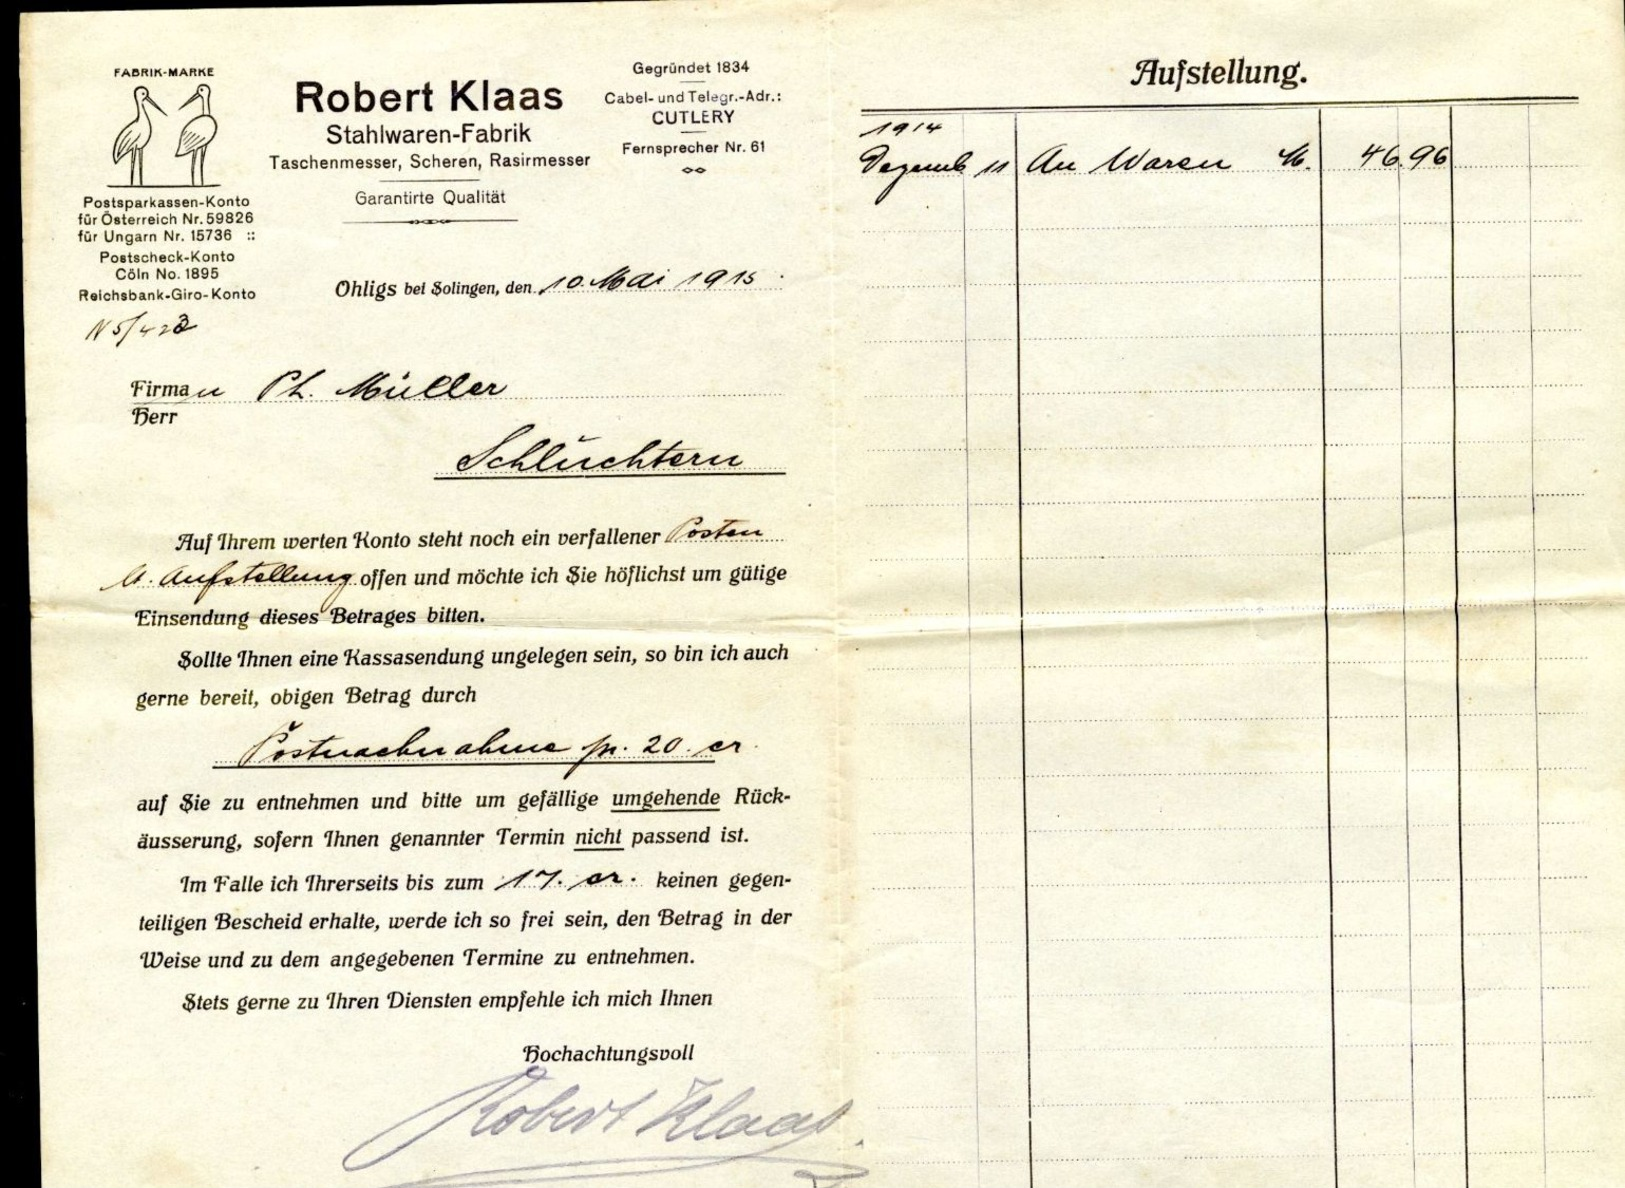 FABRIK-MARKE
Postsparkassen-Konto
für Österreich Nr. 59826
für Ungarn Nr. 15736 ::
Postscheck-Konto
Cöln No. 1895
Reichsbank-Giro-Konto
Robert Klaas
Stahlwaren-Fabrik
Taschenmesser, Scheren, Rasirmesser
Garantirte Qualität
Gegründet 1834
Cabel- und Telegr.-Adr.:
CUTLERY
Fernsprecher Nr. 61
Ohligs bei Solingen, den 10. Mai 1915
N 5/423
Firma Ph. Müller
Herr
Schlüchtern
Auf Ihrem werten Konto steht noch ein verfallener Posten
Aufstellung offen und möchte ich Sie höflichst um gütige
Einsendung dieses Betrages bitten.
Sollte Ihnen eine Kassasendung ungelegen sein, so bin ich auch
gerne bereit, obigen Betrag durch
Postnachnahme pr. 20. cr.
auf Sie zu entnehmen und bitte um gefällige umgehende Rück-
äusserung, sofern Ihnen genannter Termin nicht passend ist.
Im Falle ich Ihrerseits bis zum 17. cr. keinen gegen-
teiligen Bescheid erhalte, werde ich so frei sein, den Betrag in der
Weise und zu dem angegebenen Termine zu entnehmen.
Stets gerne zu Ihren Diensten empfehle ich mich Ihnen
Hochachtungsvoll
Robert Klaas.
Aufstellung.
1914
Dezemb 11 An Waren M. 46.96